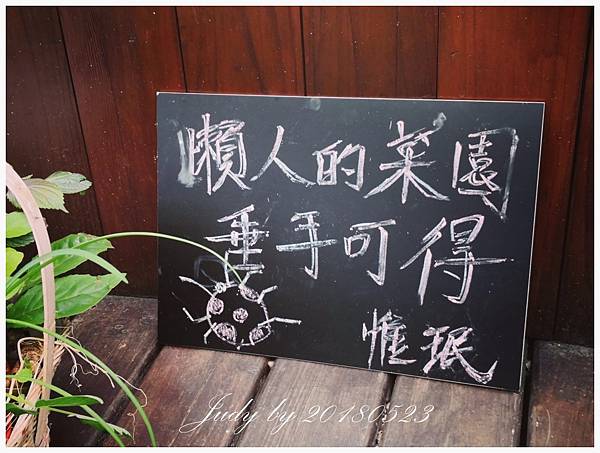 懶人的菜園
垂手可得
惟珉
Judy by 20180523